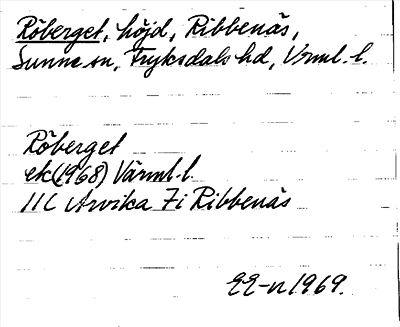 Röberget, höjd, Ribbenäs,
Sunne sn, Fryksdals hd, Vrml. l.
Röberget
ek(1968) Värml. l.
11C Arvika 7i Ribbenäs
EE-n 1969.